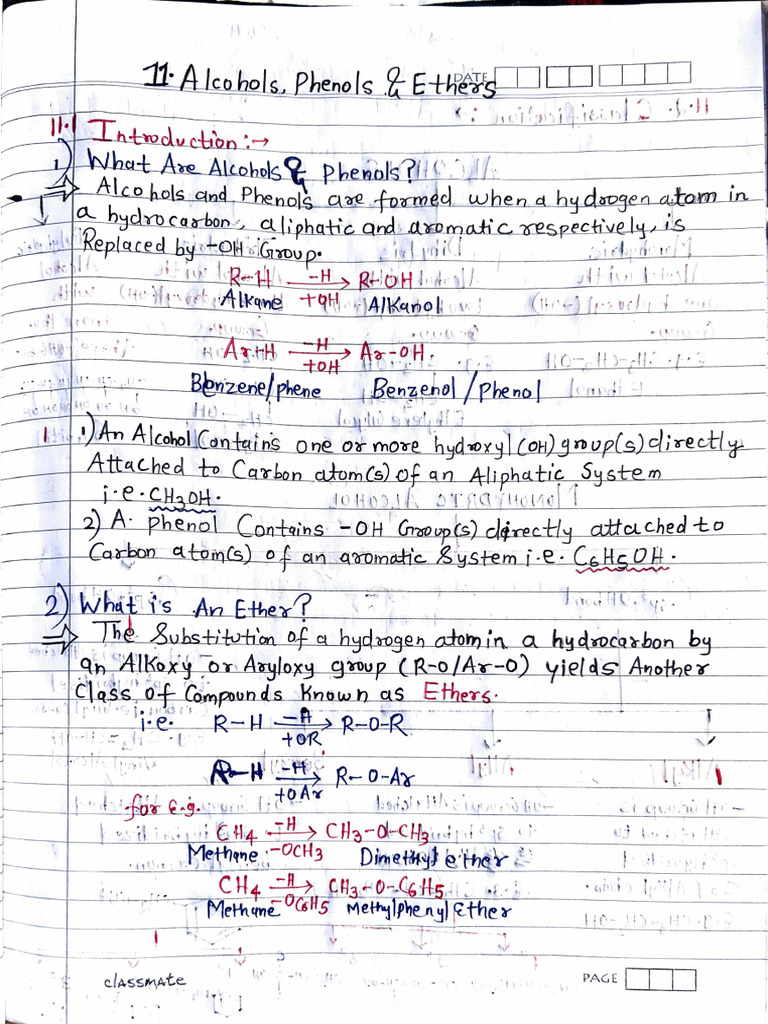 DATE
11. Alcohols, Phenols & Ethers
11.1 Introduction :→
1) What Are Alcohols & Phenols?
⇒ Alcohols and Phenols are formed when a hydrogen atom in
a hydrocarbon, aliphatic and aromatic respectively, is
Replaced by -OH Group.
R-H —-H/+OH→ R-OH
Alkane Alkanol
Ar-H —-H/+OH→ Ar-OH.
Benzene/phene Benzenol/Phenol
1) An Alcohol Contains one or more hydroxyl (OH) group(s) directly
Attached to Carbon atom(s) of an Aliphatic System
i.e. CH3OH.
2) A phenol Contains -OH Group(s) directly attached to
Carbon atom(s) of an aromatic System i.e. C6H5OH.
2) What is An Ether?
⇒ The Substitution of a hydrogen atom in a hydrocarbon by
an Alkoxy or Aryloxy group (R-O/Ar-O) yields Another
Class of Compounds Known as Ethers.
i.e. R-H —-H/+OR→ R-O-R
R-H —-H/+OAr→ R-O-Ar
for e.g.
CH4 —-H/-OCH3→ CH3-O-CH3
Methane Dimethyl ether
CH4 —-H/-OC6H5→ CH3-O-C6H5
Methane Methylphenyl Ether
classmate
PAGE